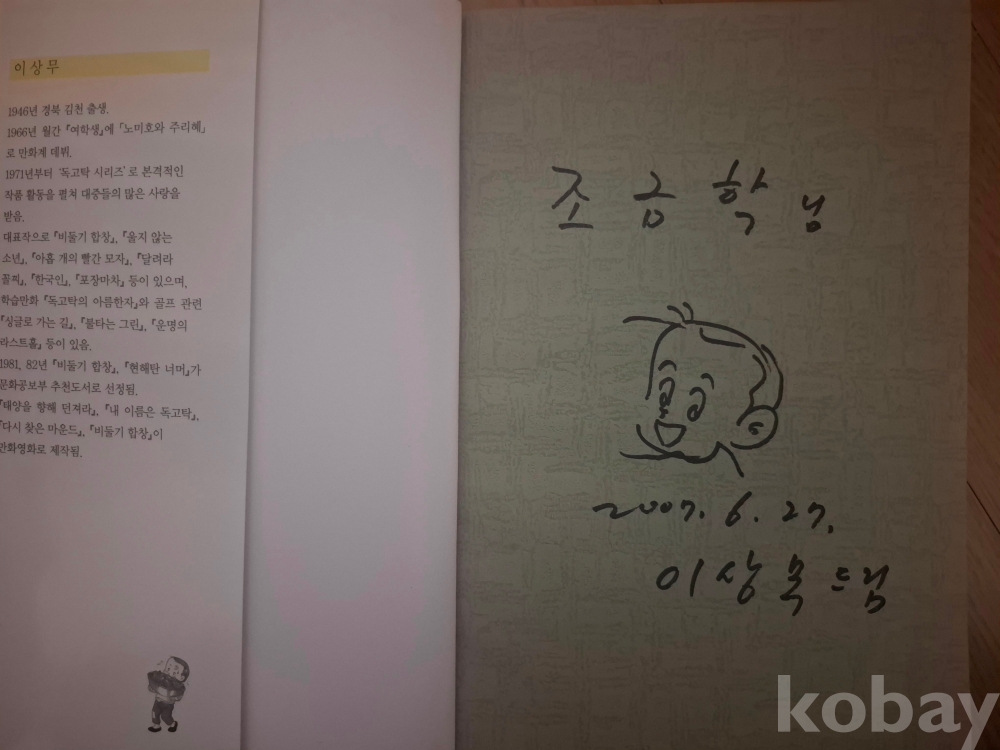 이상무
1946년 경북 김천 출생.
1966년 월간 『여학생』에 「노미호와 주리혜」
로 만화계 데뷔.
1971년부터 '독고탁 시리즈'로 본격적인
작품 활동을 펼쳐 대중들의 많은 사랑을
받음.
대표작으로 『비둘기 합창』, 『울지 않는
소년』, 『아홉 개의 빨간 모자』, 『달려라
꼴찌』, 『한국인』, 『포장마차』 등이 있으며,
학습만화 『독고탁의 아름한자』와 골프 관련
『싱글로 가는 길』, 『불타는 그린』, 『운명의
라스트홀』 등이 있음.
1981, 82년 『비둘기 합창』, 『현해탄 너머』가
문화공보부 추천도서로 선정됨.
『태양을 향해 던져라』, 『내 이름은 독고탁』,
『다시 찾은 마운드』, 『비둘기 합창』이
만화영화로 제작됨.
조금학님
2007. 6. 27.
이상무 드림
kobay